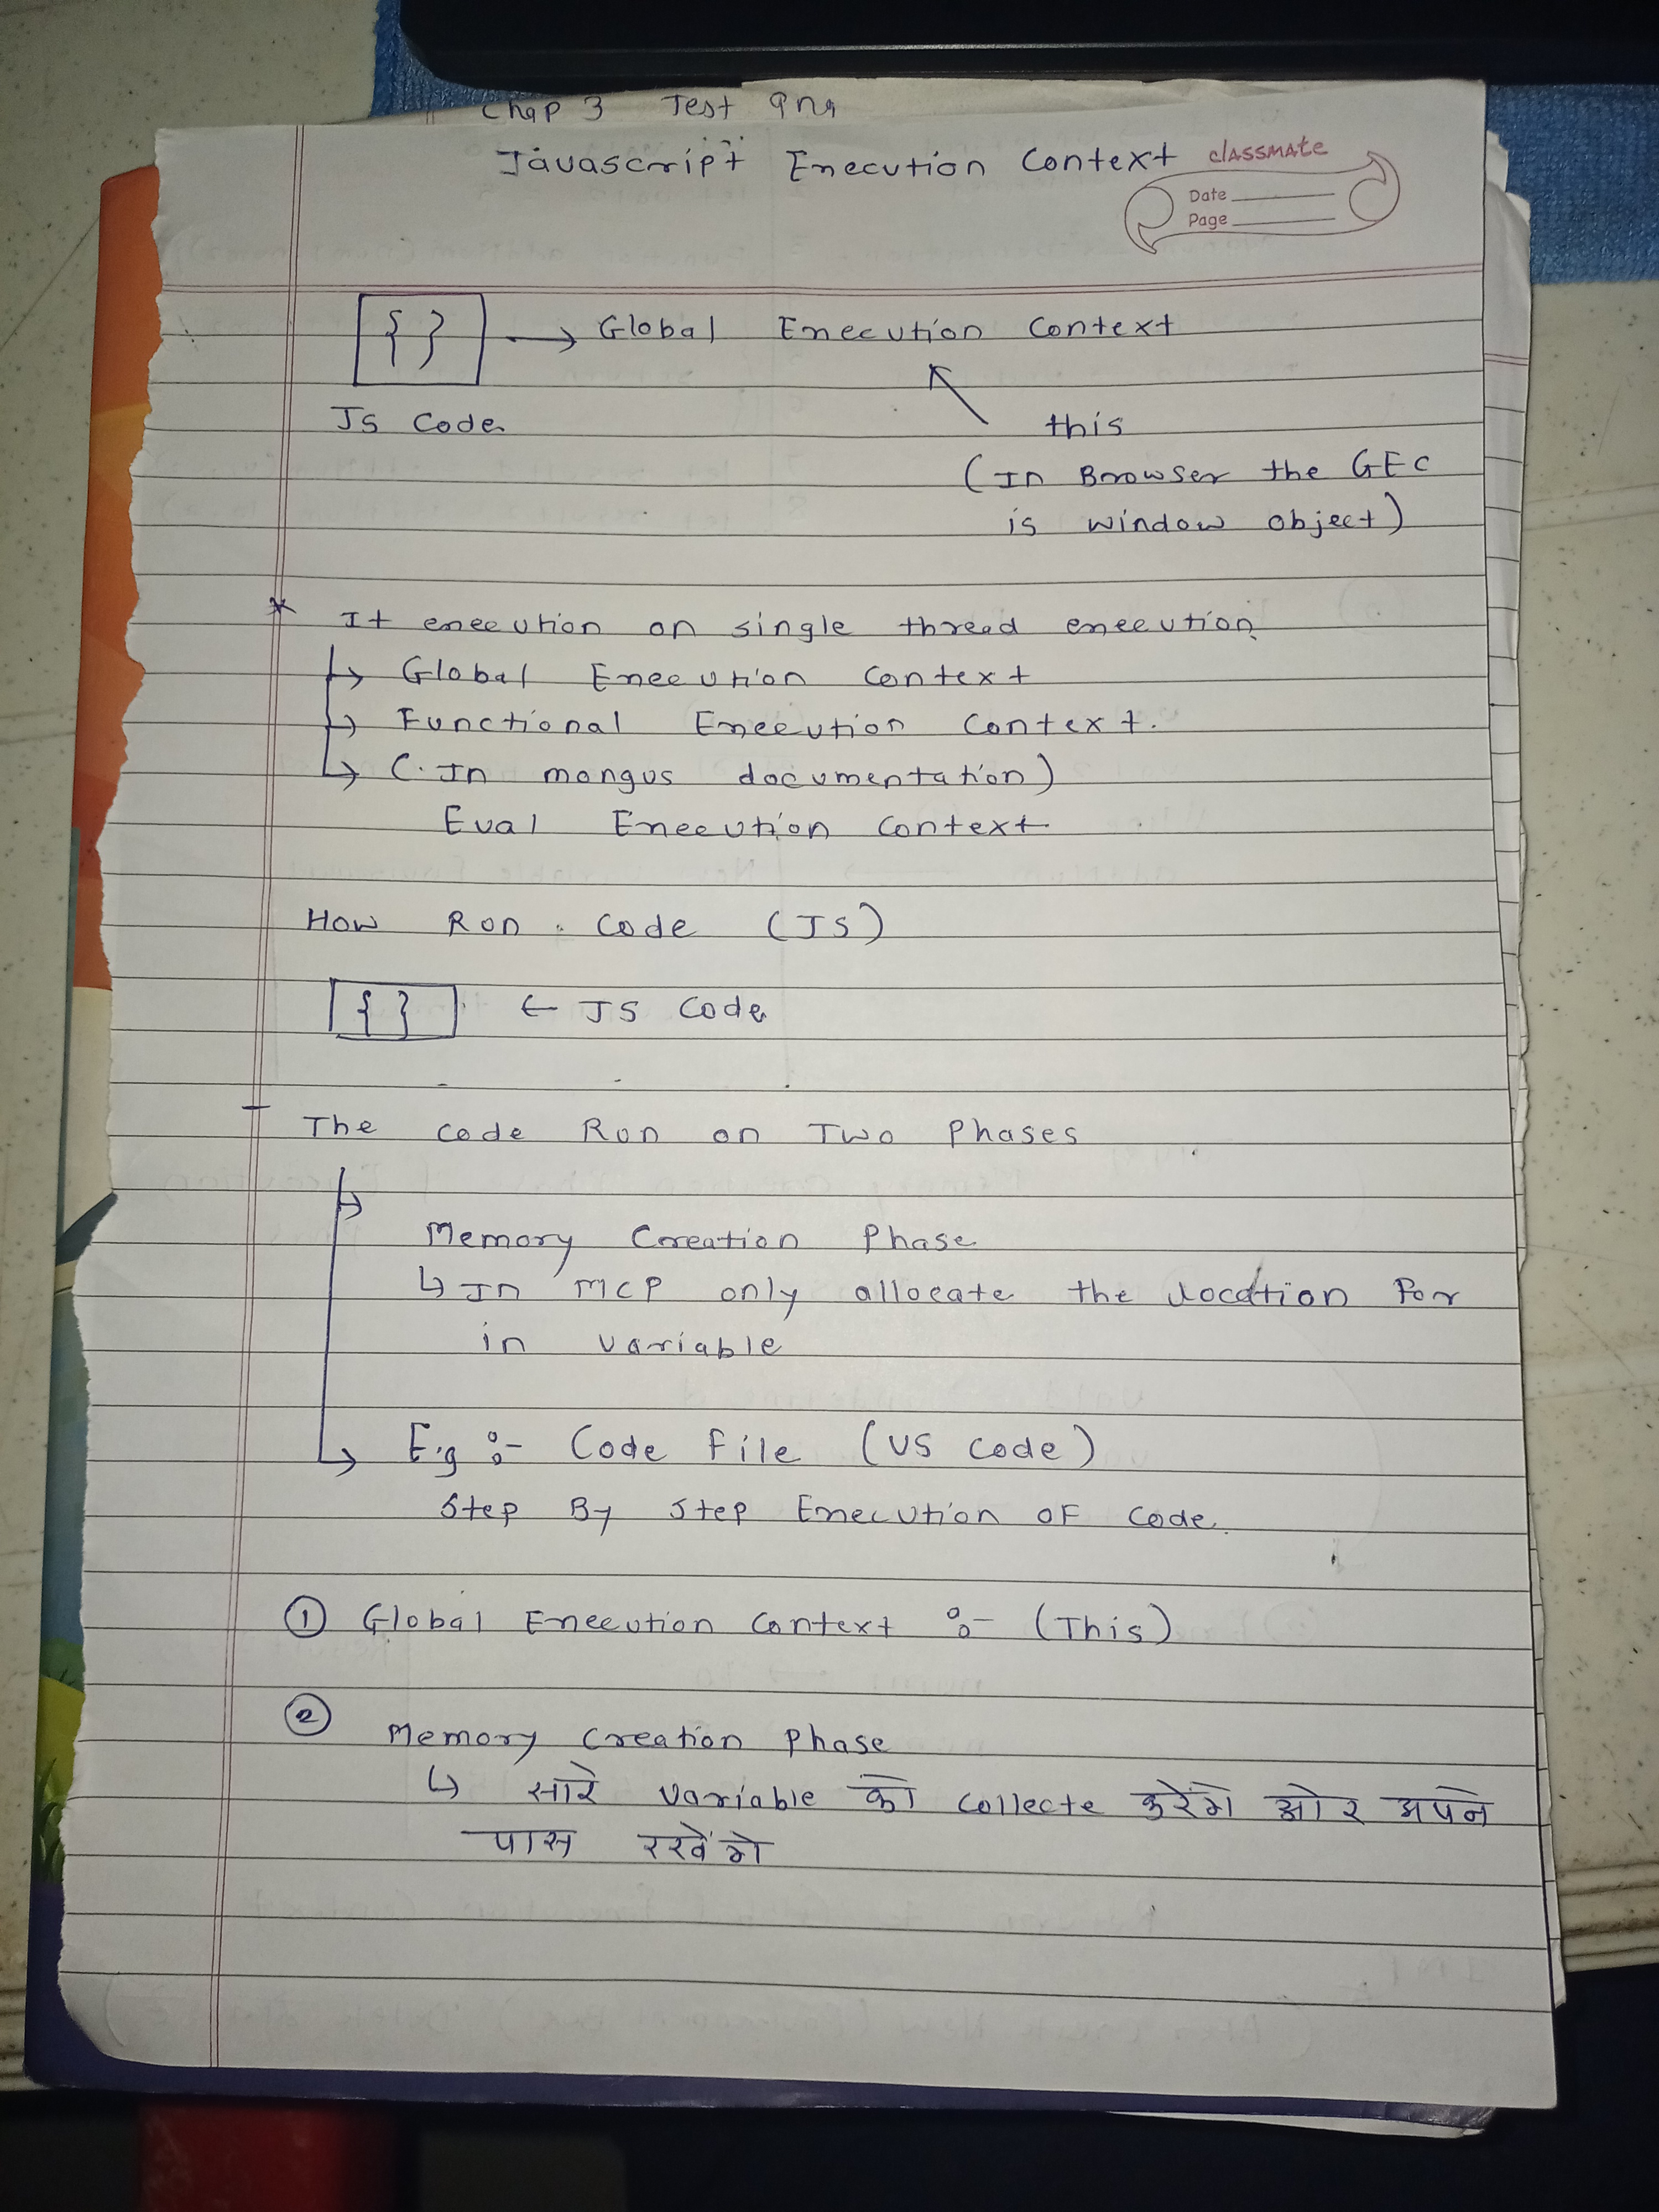 Chap 3 Test
Javascript Execution Context
classmate
Date
Page
{ } → Global Execution Context
JS Code
this
(In Browser the GEC
is window object)
* It execution on single thread execution
↳ Global Execution Context
↳ Functional Execution Context.
↳ (In mongus documentation)
Eval Execution Context
How Run Code (JS)
{ } ← JS Code
- The code Run on Two Phases
↳
Memory Creation Phase
↳ In MCP only allocate the location for
in variable
↳ E.g :- Code File (VS Code)
Step By Step Execution OF Code.
① Global Execution Context :- (This)
② Memory Creation Phase
↳ सारे variable को collecte करेंगे ओर अपने
पास रखेंगे